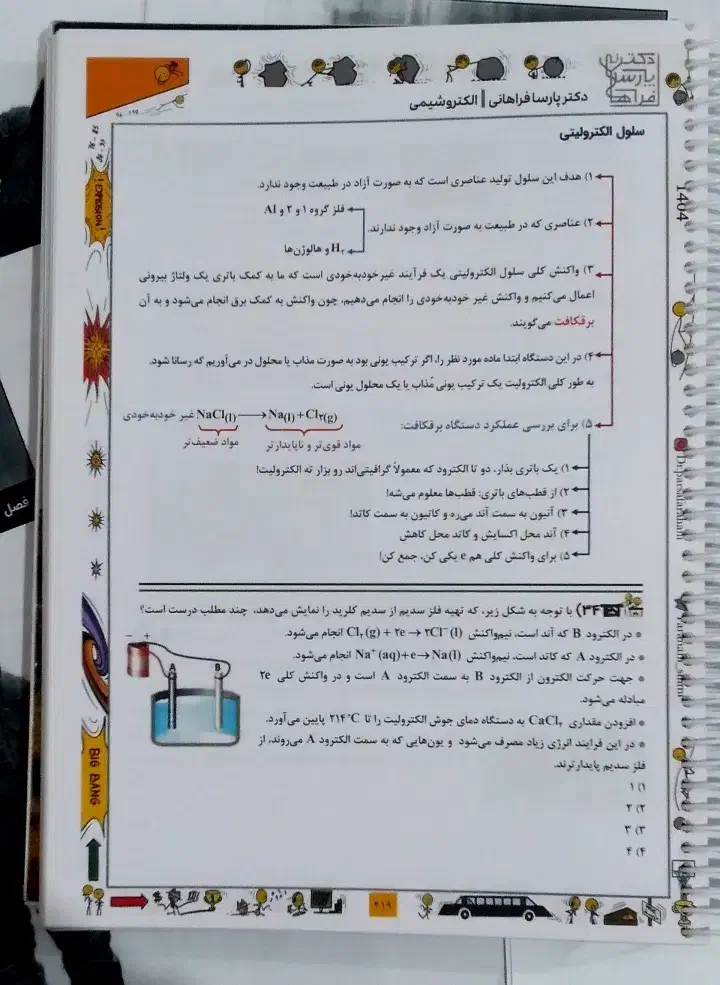 دکتر پارسا فراهانی | الکتروشیمی
سلول الکترولیتی
۱) هدف این سلول تولید عناصری است که به صورت آزاد در طبیعت وجود ندارد.
۲) عناصری که در طبیعت به صورت آزاد وجود ندارند.
فلز گروه ۱ و ۲ و Al
H₂ و هالوژن‌ها
۳) واکنش کلی سلول الکترولیتی یک فرآیند غیرخودبه‌خودی است که ما به کمک باتری یک ولتاژ بیرونی
اعمال می‌کنیم و واکنش غیر خودبه‌خودی را انجام می‌دهیم، چون واکنش به کمک برق انجام می‌شود و به آن
برقکافت می‌گویند.
۴) در این دستگاه ابتدا ماده مورد نظر را، اگر ترکیب یونی بود به صورت مذاب یا محلول در می‌آوریم که رسانا شود.
به طور کلی الکترولیت یک ترکیب یونی مُذاب یا یک محلول یونی است.
۵) برای بررسی عملکرد دستگاه برقکافت:
NaCl(l) ⟶ Na(l) + Cl₂(g) غیر خودبه‌خودی
مواد قوی‌تر و ناپایدارتر
مواد ضعیف‌تر
۱) یک باتری بذار، دو تا الکترود که معمولاً گرافیتی‌اند رو بزار ته الکترولیت!
۲) از قطب‌های باتری: قطب‌ها معلوم می‌شه!
۳) آنیون به سمت آند می‌ره و کاتیون به سمت کاتد!
۴) آند محل اکسایش و کاتد محل کاهش
۵) برای واکنش کلی هم e یکی کن، جمع کن!
۳۴) با توجه به شکل زیر، که تهیه فلز سدیم از سدیم کلرید را نمایش می‌دهد، چند مطلب درست است؟
• در الکترود B که آند است، نیم‌واکنش Cl₂(g) + ۲e → ۲Cl⁻(l) انجام می‌شود.
• در الکترود A که کاتد است، نیم‌واکنش Na⁺(aq)+e → Na(l) انجام می‌شود.
• جهت حرکت الکترون از الکترود B به سمت الکترود A است و در واکنش کلی ۲e
مبادله می‌شود.
• افزودن مقداری CaCl₂ به دستگاه دمای جوش الکترولیت را تا ۲۱۴°C پایین می‌آورد.
• در این فرایند انرژی زیاد مصرف می‌شود و یون‌هایی که به سمت الکترود A می‌روند، از
فلز سدیم پایدارترند.
۱) ۱
۲) ۲
۳) ۳
۴) ۴
− +
A B
EXPLOSION!
BIG BANG
1404
Dr.parsafarahani
۴۱۹
فصل